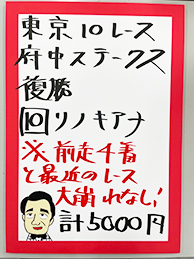 東京10レース
府中ステークス
複勝
10 リノキアナ
※前走4着
と最近のレース
大崩れなし!
計5000円